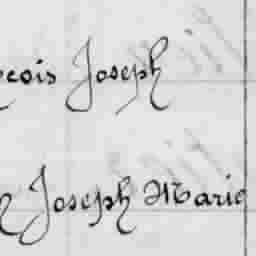 cois Joseph
Joseph Marie